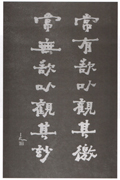 常有欲以觀其徼
常無欲以觀其妙